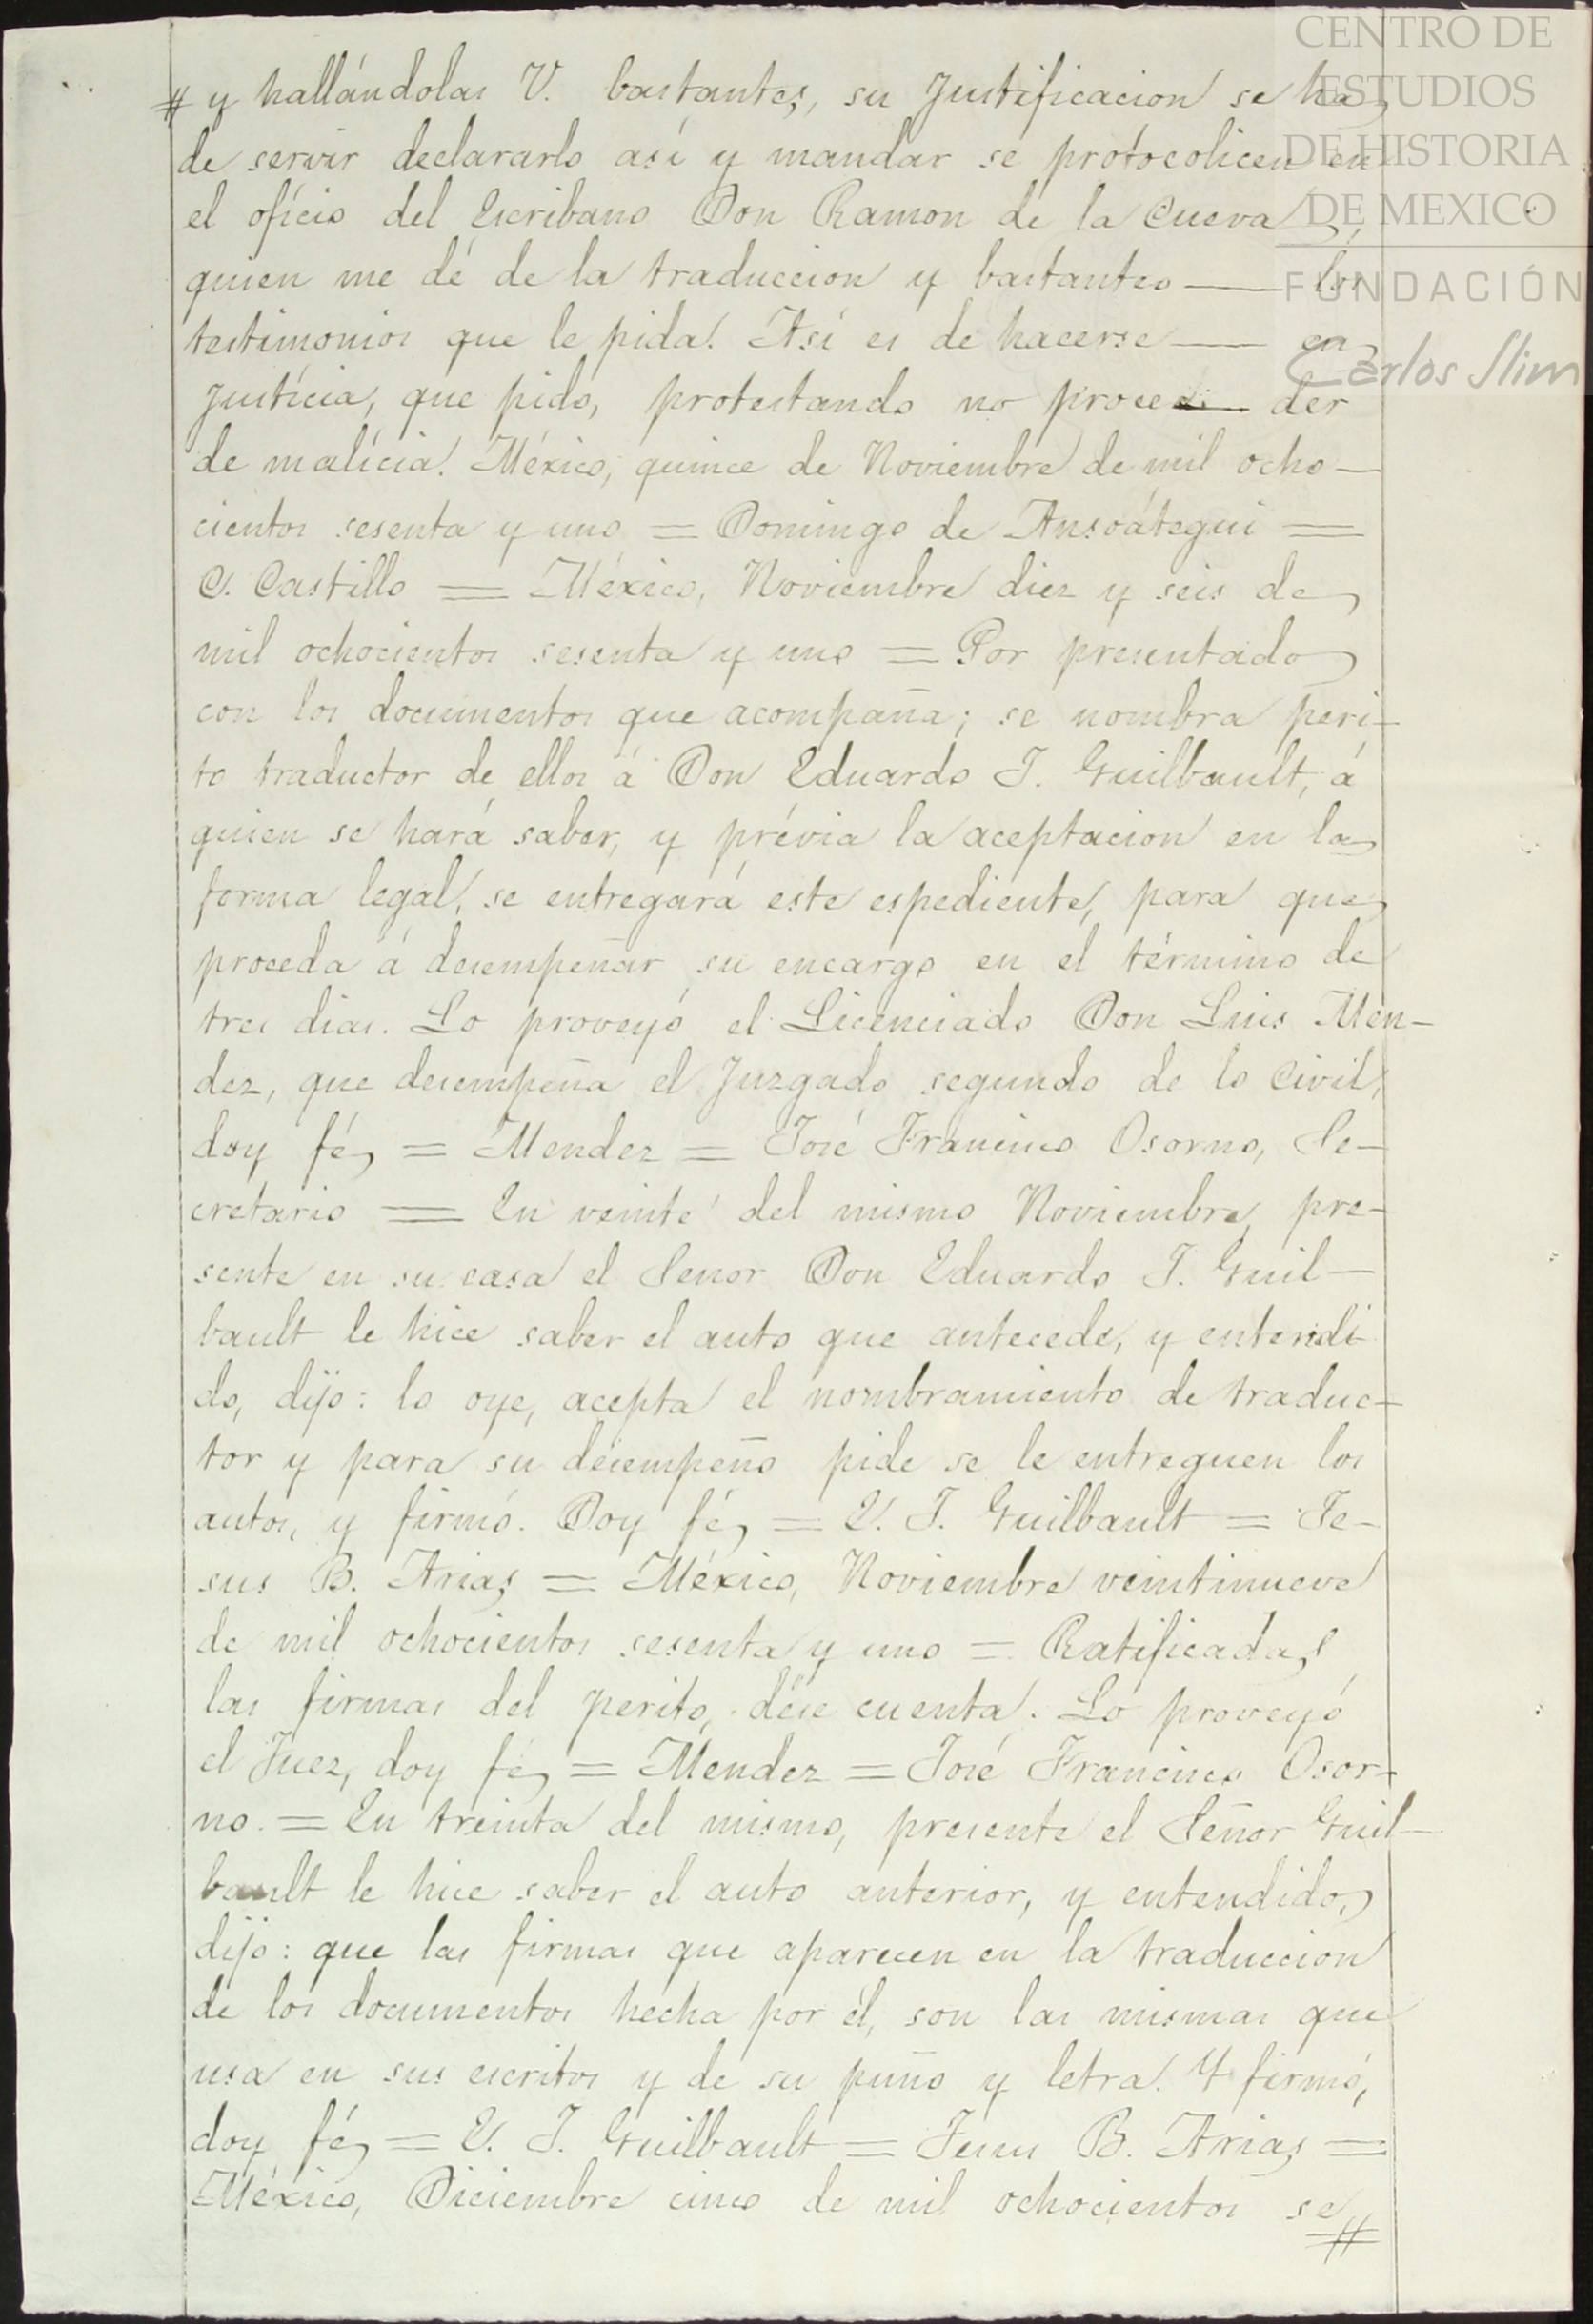 CENTRO DE
ESTUDIOS
DE HISTORIA
DE MEXICO
FUNDACIÓN
Carlos Slim
# y hallándolas V. bastantes, su Justificacion se ha
de servir declararlo así y mandar se protocolicen en
el oficio del Escribano Don Ramon de la Cueva,
quien me dé de la traduccion y bastanteo — los
testimonios que le pida. Así es de hacerse — en
Justicia, que pido, protestando no proce— der
de malicia. México, quince de Noviembre de mil ocho-
cientos sesenta y uno = Domingo de Ansoátegui =
C. Castillo = México, Noviembre diez y seis de
mil ochocientos sesenta y uno = Por presentado
con los documentos que acompaña; se nombra peri-
to traductor de ellos á Don Eduardo J. Guilbault, á
quien se hará saber, y prévia la aceptacion en la
forma legal, se entregará este espediente, para que
proceda á desempeñar su encargo en el término de
tres dias. Lo proveyó el Licenciado Don Luis Men-
dez, que desempeña el Juzgado segundo de lo Civil,
doy fé, = Mendez = José Francisco Osorno, Se-
cretario = En veinte del mismo Noviembre, pre-
sente en su casa el Senor Don Eduardo J. Guil-
bault le hice saber el auto que antecede, y entendi
do, dijo: lo oye, acepta el nombramiento de traduc-
tor y para su desempeño pide se le entreguen los
autos, y firmó. Doy fé, = E. J. Guilbault = Je-
sus B. Arias = México, Noviembre veintinueve
de mil ochocientos sesenta y uno = Ratificadas
las firmas del perito, dése cuenta. Lo proveyó
el Juez, doy fé, = Mendez = José Francisco Osor-
no. = En treinta del mismo, presente el Señor Guil-
bault le hice saber el auto anterior, y entendido,
dijo: que las firmas que aparecen en la traduccion
de los documentos hecha por él, son las mismas que
usa en sus escritos y de su puño y letra. Y firmó,
doy fé, = E. J. Guilbault = Jesus B. Arias =
México, Diciembre cinco de mil ochocientos se#